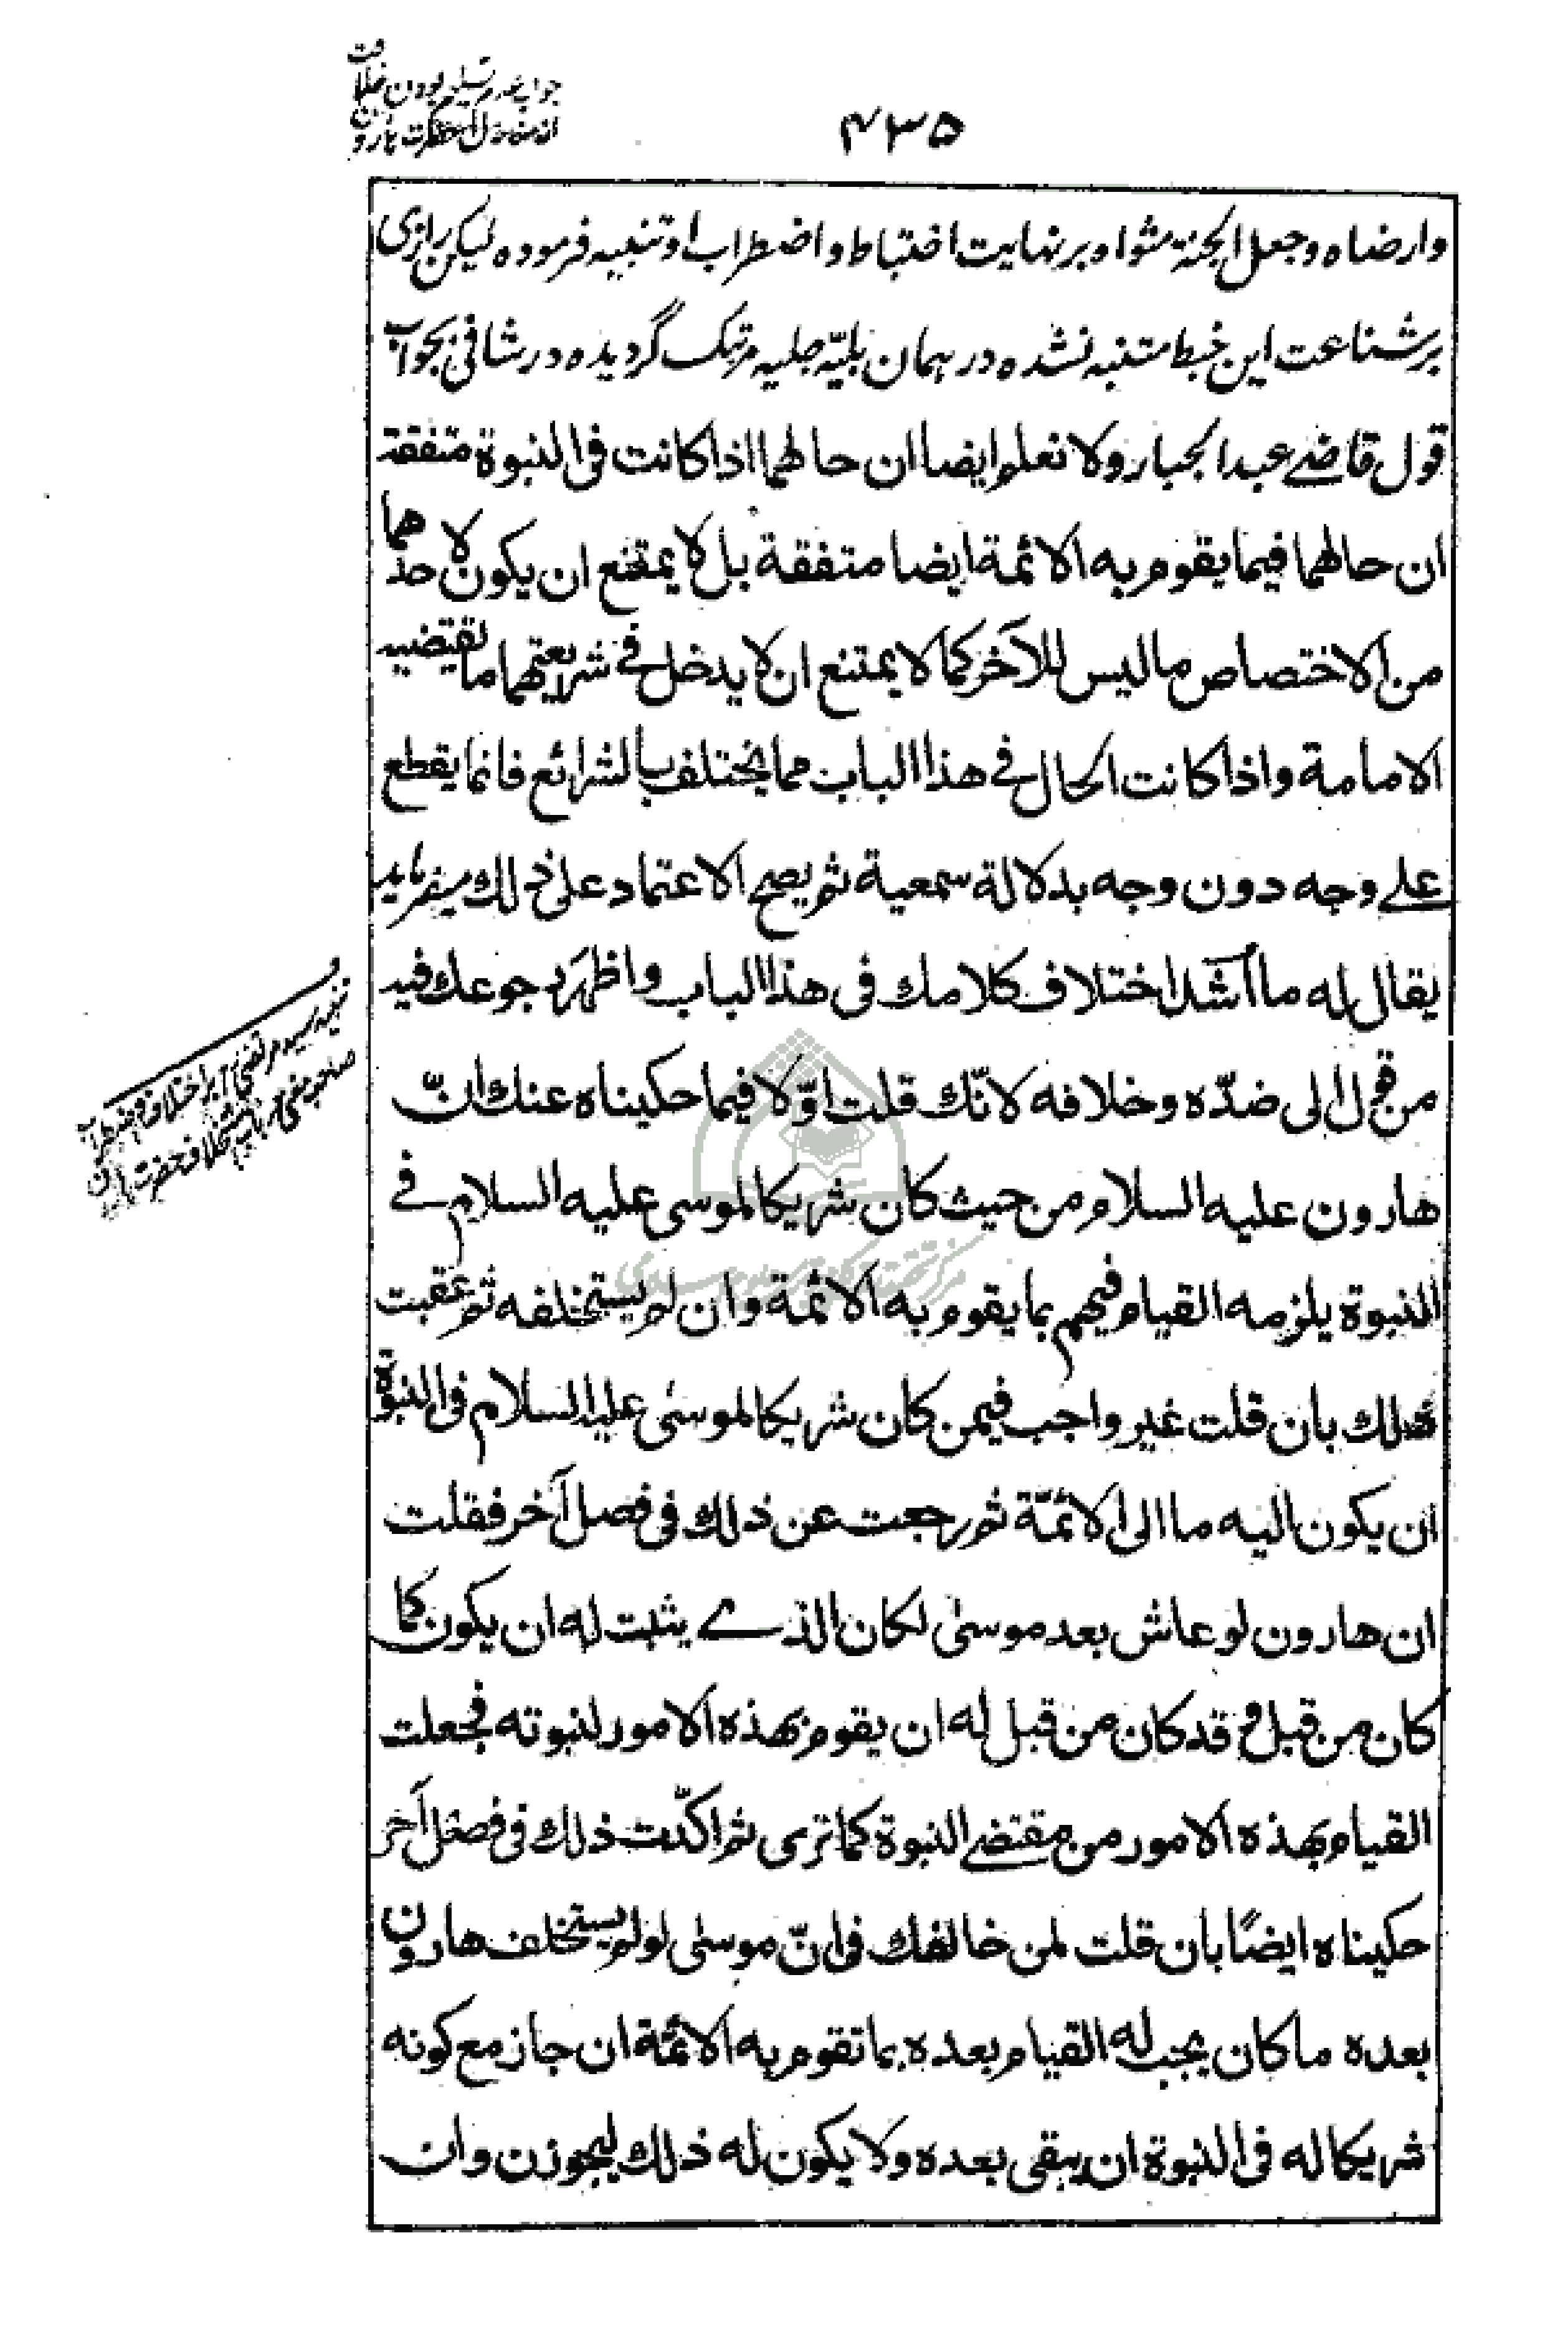 جواب عدم تسلیم بودن خلافت
از منازل حضرت هارون
۴۳۵
وارضاه وجعل الجنة مثواه بر نهایت اختباط واضطراب او تنبیه فرموده لیکن رازی
بر شناعت این خبط متنبه نشده در همان بلیّه جلیه مرتبک گردیده در شافی بجواب
قول قاضے عبد الجبار ولا نعلم ایضا ان حالهما اذا کانت فی النبوة متفقة
ان حالهما فیما یقوم به الائمة ایضا متفقة بل لا یمتنع ان یکون لاحدهما
من الاختصاص ما لیس للآخر کما لا یمتنع ان لا یدخل فے شریعتهما ما تقتضیه
الامامة واذا کانت الحال فے هذا الباب مما یختلف بالشرائع فانما یقطع
علے وجه دون وجه بدلالة سمعیة ثم یصح الاعتماد علی ذلك میفرماید
یقال له ما اشد اختلاف کلامك فی هذا الباب واظهر رجوعك فیه
من قول الی ضدّه وخلافه لانّك قلت اوّلا فیما حکیناه عنك انّ
هارون علیه السلام من حیث کان شریکا لموسی علیه السلام فے
النبوة یلزمه القیام فیهم بما یقوم به الائمة وان لم یستخلفه ثم عقبت
ذلك بان قلت غیر واجب فیمن کان شریکا لموسی علیه السلام فی النبوة
ان یکون الیه ما الی الائمّة ثم رجعت عن ذلك فی فصل آخر فقلت
ان هارون لو عاش بعد موسی لکان الذے یثبت له ان یکون کما
کان من قبل و قد کان من قبل له ان یقوم بهذه الامور لنبوته فجعلت
القیام بهذه الامور من مقتضے النبوة کما تری ثم اکّدت ذلك فی فصل آخر
حکیناه ایضًا بان قلت لمن خالفك فی انّ موسی لو لم یستخلف هارون
بعده ما کان یجب له القیام بعده بما تقوم به الائمّة ان جاز مع کونه
شریکا له فی النبوة ان یبقی بعده ولا یکون له ذلك لیجوزن وان
تنبیه سید مرتضی بر اختلاف واضطراب